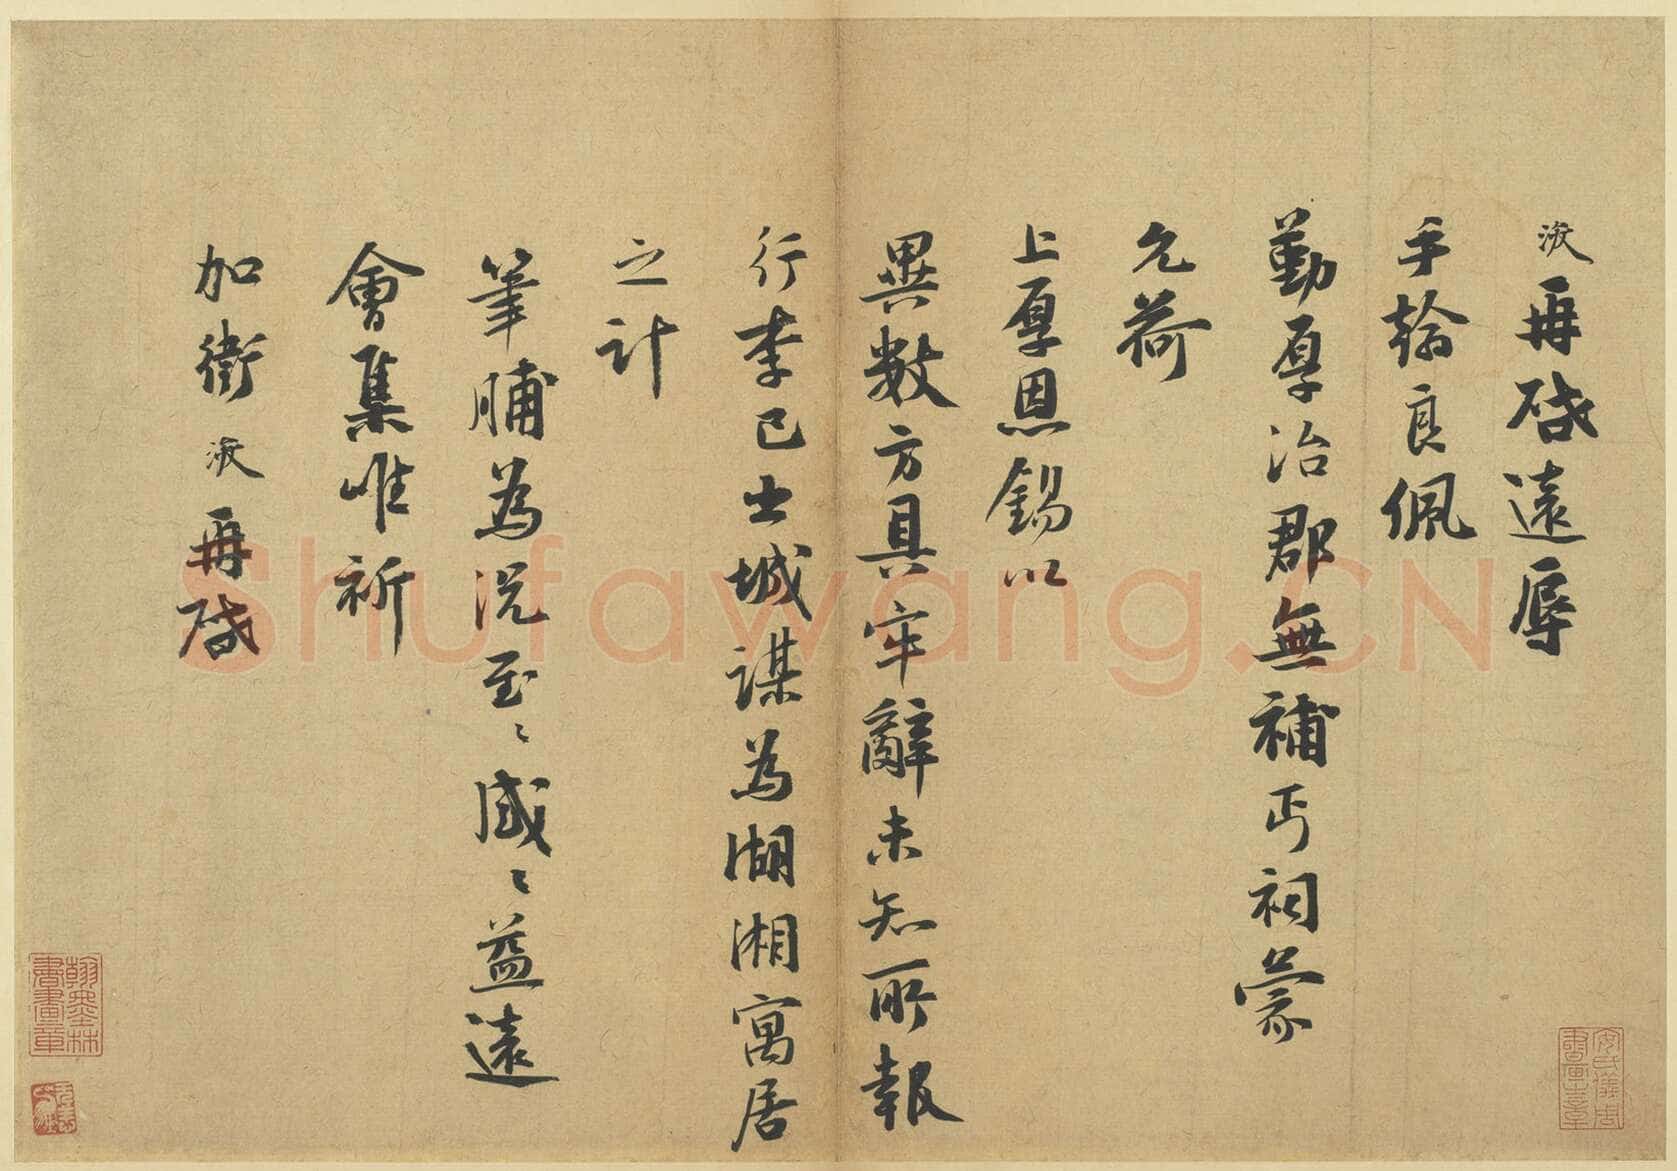 浚再啓遠辱
手翰良佩
勤厚治郡無補丐祠蒙
允荷
上厚恩錫以
異數方具牢辭未知所報
行李已出城謀為湖湘寓居
之計
筆脯為況至〻感〻益遠
會集唯祈
加衛浚再啓
安氏儀周書畫之章
翰墨林書畫章
Shufawang.CN